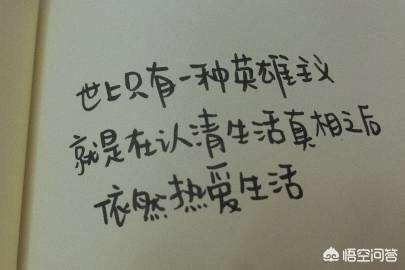 世上只有一种英雄主义
就是在认清生活真相之后
依然热爱生活
悟空问答